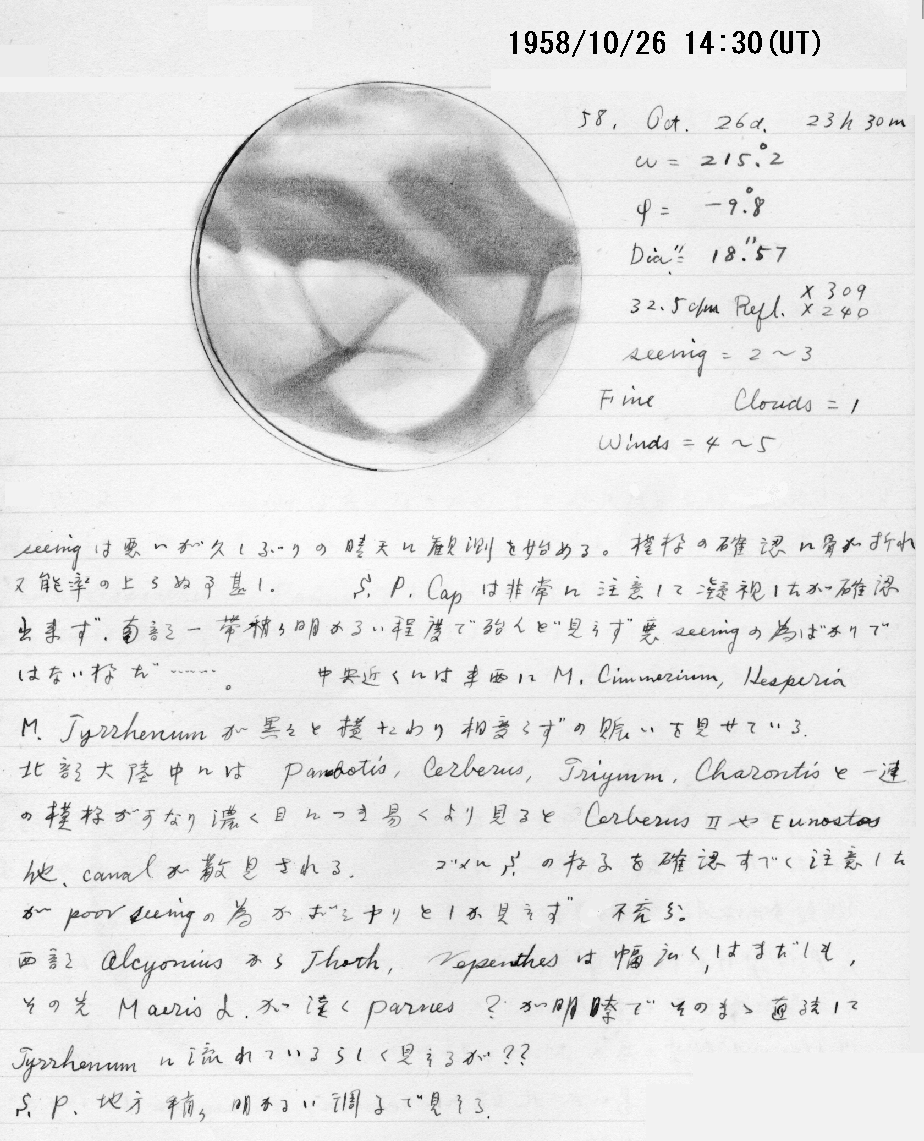 1958/10/26 14:30(UT)
58. Oct. 26d. 23h 30m
ω = 215.°2
φ = -9.°8
Dia = 18."57
32.5cm Refl. × 309 × 240
seeing = 2～3
Fine Clouds = 1
Winds = 4～5
seeingは悪いが久しぶりの晴天に観測を始める。模様の確認に骨が折れ
て能率の上らぬ事甚し. S. P. Capは非常に注意して凝視したが確認
出来ず. 南部一帯稍々明かるい程度で殆んど見えず悪seeingの為ばかりで
はない様だ……。 中央近くには東西にM. Cimmerium, Hesperia
M. Tyrrhenumが黒々と横たわり相変らずの賑いを見せている.
北部大陸中には Pambotis, Cerberus, Trivium, Charontisと一連
の模様がかなり濃く目につき易くより見ると Cerberus IIや Eunostos
他, canalが散見される. の様子を確認すべく注意した
が poor seeingの為かぼンヤリとしか見えず 不充分.
西部 Alcyonius から Thoth, Nepenthesは幅広く,はまだしも,
その先 Maeris L.が淡く Parnes ?が明瞭でそのまゝ直接に
Tyrrhenumに流れているらしく見えるが??
S. P. 地方稍々明かるい調子で見える.